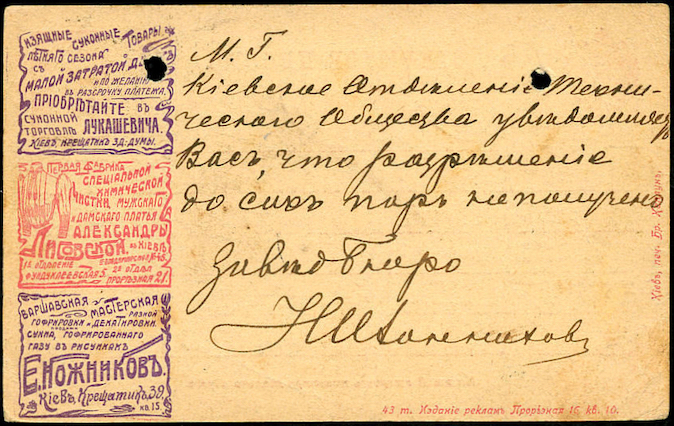 ИЗЯЩНЫЕ СУКОННЫЕ ТОВАРЫ
ЛѢТНЯГО СЕЗОНА
СЪ
МАЛОЙ ЗАТРАТОЙ
И ПО ЖЕЛАНІЮ
ВЪ РАЗСРОЧКУ ПЛАТЕЖА.
ПРІОБРѢТАЙТЕ ВЪ
СУКОННОЙ
ТОРГОВЛѢ ЛУКАШЕВИЧА.
КІЕВЪ, КРЕЩАТИКЪ ЗД. ДУМЫ.
ПЕРВАЯ ФАБРИКА
СПЕЦІАЛЬНОЙ
ХИМИЧЕСКОЙ
ЧИСТКИ МУЖСКАГО
И ДАМСКАГО ПЛАТЬЯ
АЛЕКСАНДРЫ
ЛИСОВСКОЙ, ВЪ КІЕВѢ
№ 45.
1е ОТДѢЛЕНІЕ
ФУНДУКЛЕЕВСКАЯ 5.
2е ОТДѢЛ.
ПРОРѢЗНАЯ 21.
ВАРШАВСКАЯ МАСТЕРСКАЯ
РАЗНОЙ
ГОФРИРОВКИ И ДЕКАТИРОВКИ
СУКНА, ГОФРИРОВАННАГО
ГАЗУ ВЪ РИСУНКАХЪ
Е. НОЖНИКОВЪ.
КІЕВЪ, Крещатикъ, 39,
кв. 15
М. Г.
Кіевское Отдѣленіе Техни-
ческаго Общества увѣдомляетъ
Васъ, что разрѣшеніе
до сихъ поръ не получено
Завѣд Бюро
Кіевъ, печ. Бр.
43 т. Изданіе реклам. Прорѣзная 16 кв. 10.